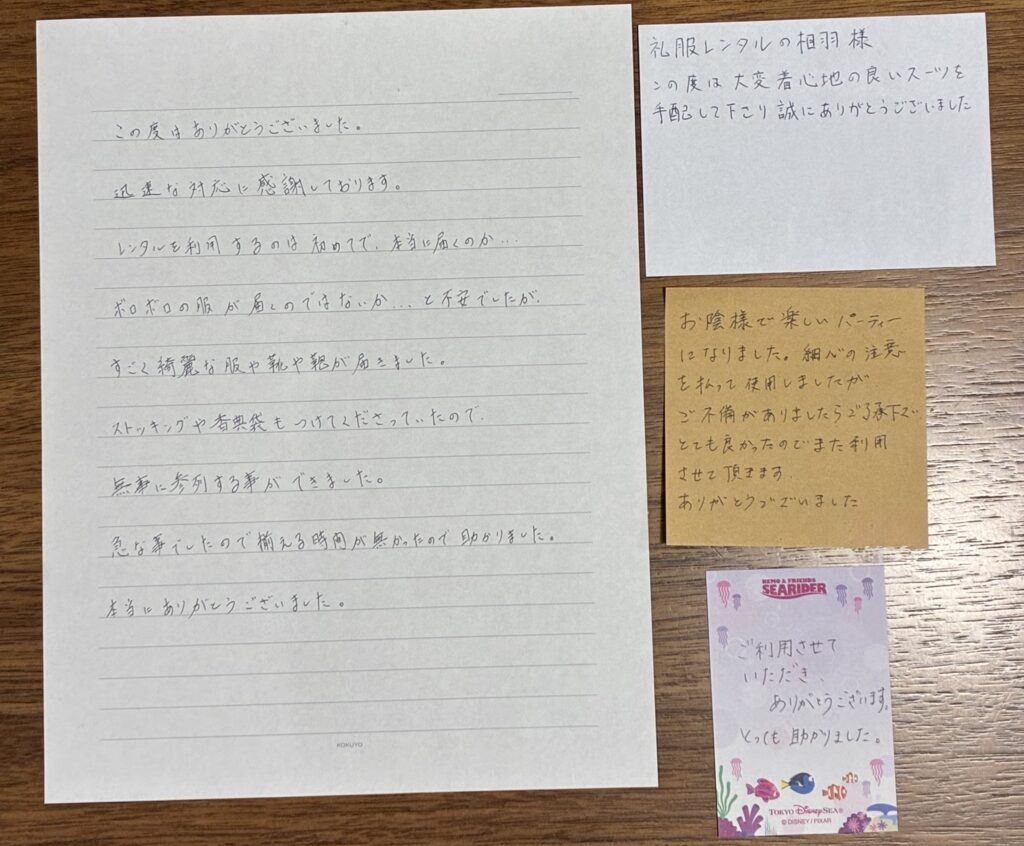 この度はありがとうございました。
迅速な対応に感謝しております。
レンタルを利用するのは初めてで、本当に届くのか…
ボロボロの服が届くのではないか…と不安でしたが、
すごく綺麗な服や靴や鞄が届きました。
ストッキングや香典袋もつけてくださっていたので、
無事に参列する事ができました。
急な事でしたので揃える時間が無かったので助かりました。
本当にありがとうございました。
KOKUYO
礼服レンタルの相羽様
この度は大変着心地の良いスーツを
手配して下さり誠にありがとうございました
お陰様で楽しいパーティー
になりました。細心の注意
を払って使用しましたが
ご不備がありましたらご了承下さい。
とても良かったのでまた利用
させて頂きます。
ありがとうございました
NEMO & FRIENDS
SEARIDER
ご利用させて
いただき、
ありがとうございます。
とっても助かりました。
TOKYO DISNEYSEA®
© DISNEY / PIXAR